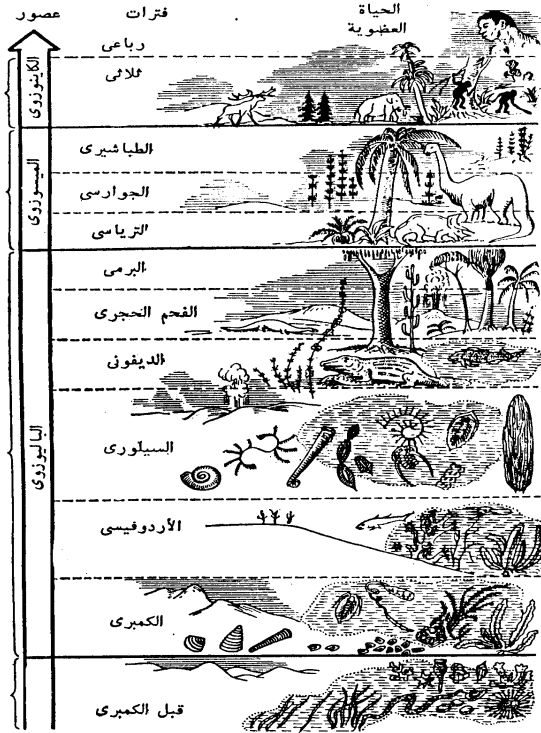 عصور
فترات
الحياة
العضوية
رباعى
ثلاثى
الكاينوزوى
الطباشيرى
الجوارسى
الترياسى
الميسوزوى
البرمى
الفحم الحجرى
الديفونى
السيلورى
الأردوفيسى
الكمبرى
الباليوزوى
قبل الكمبرى